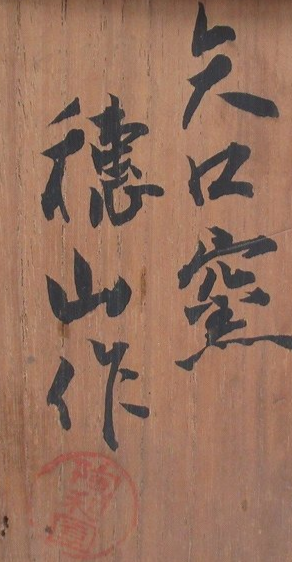 矢口窯
穂山作